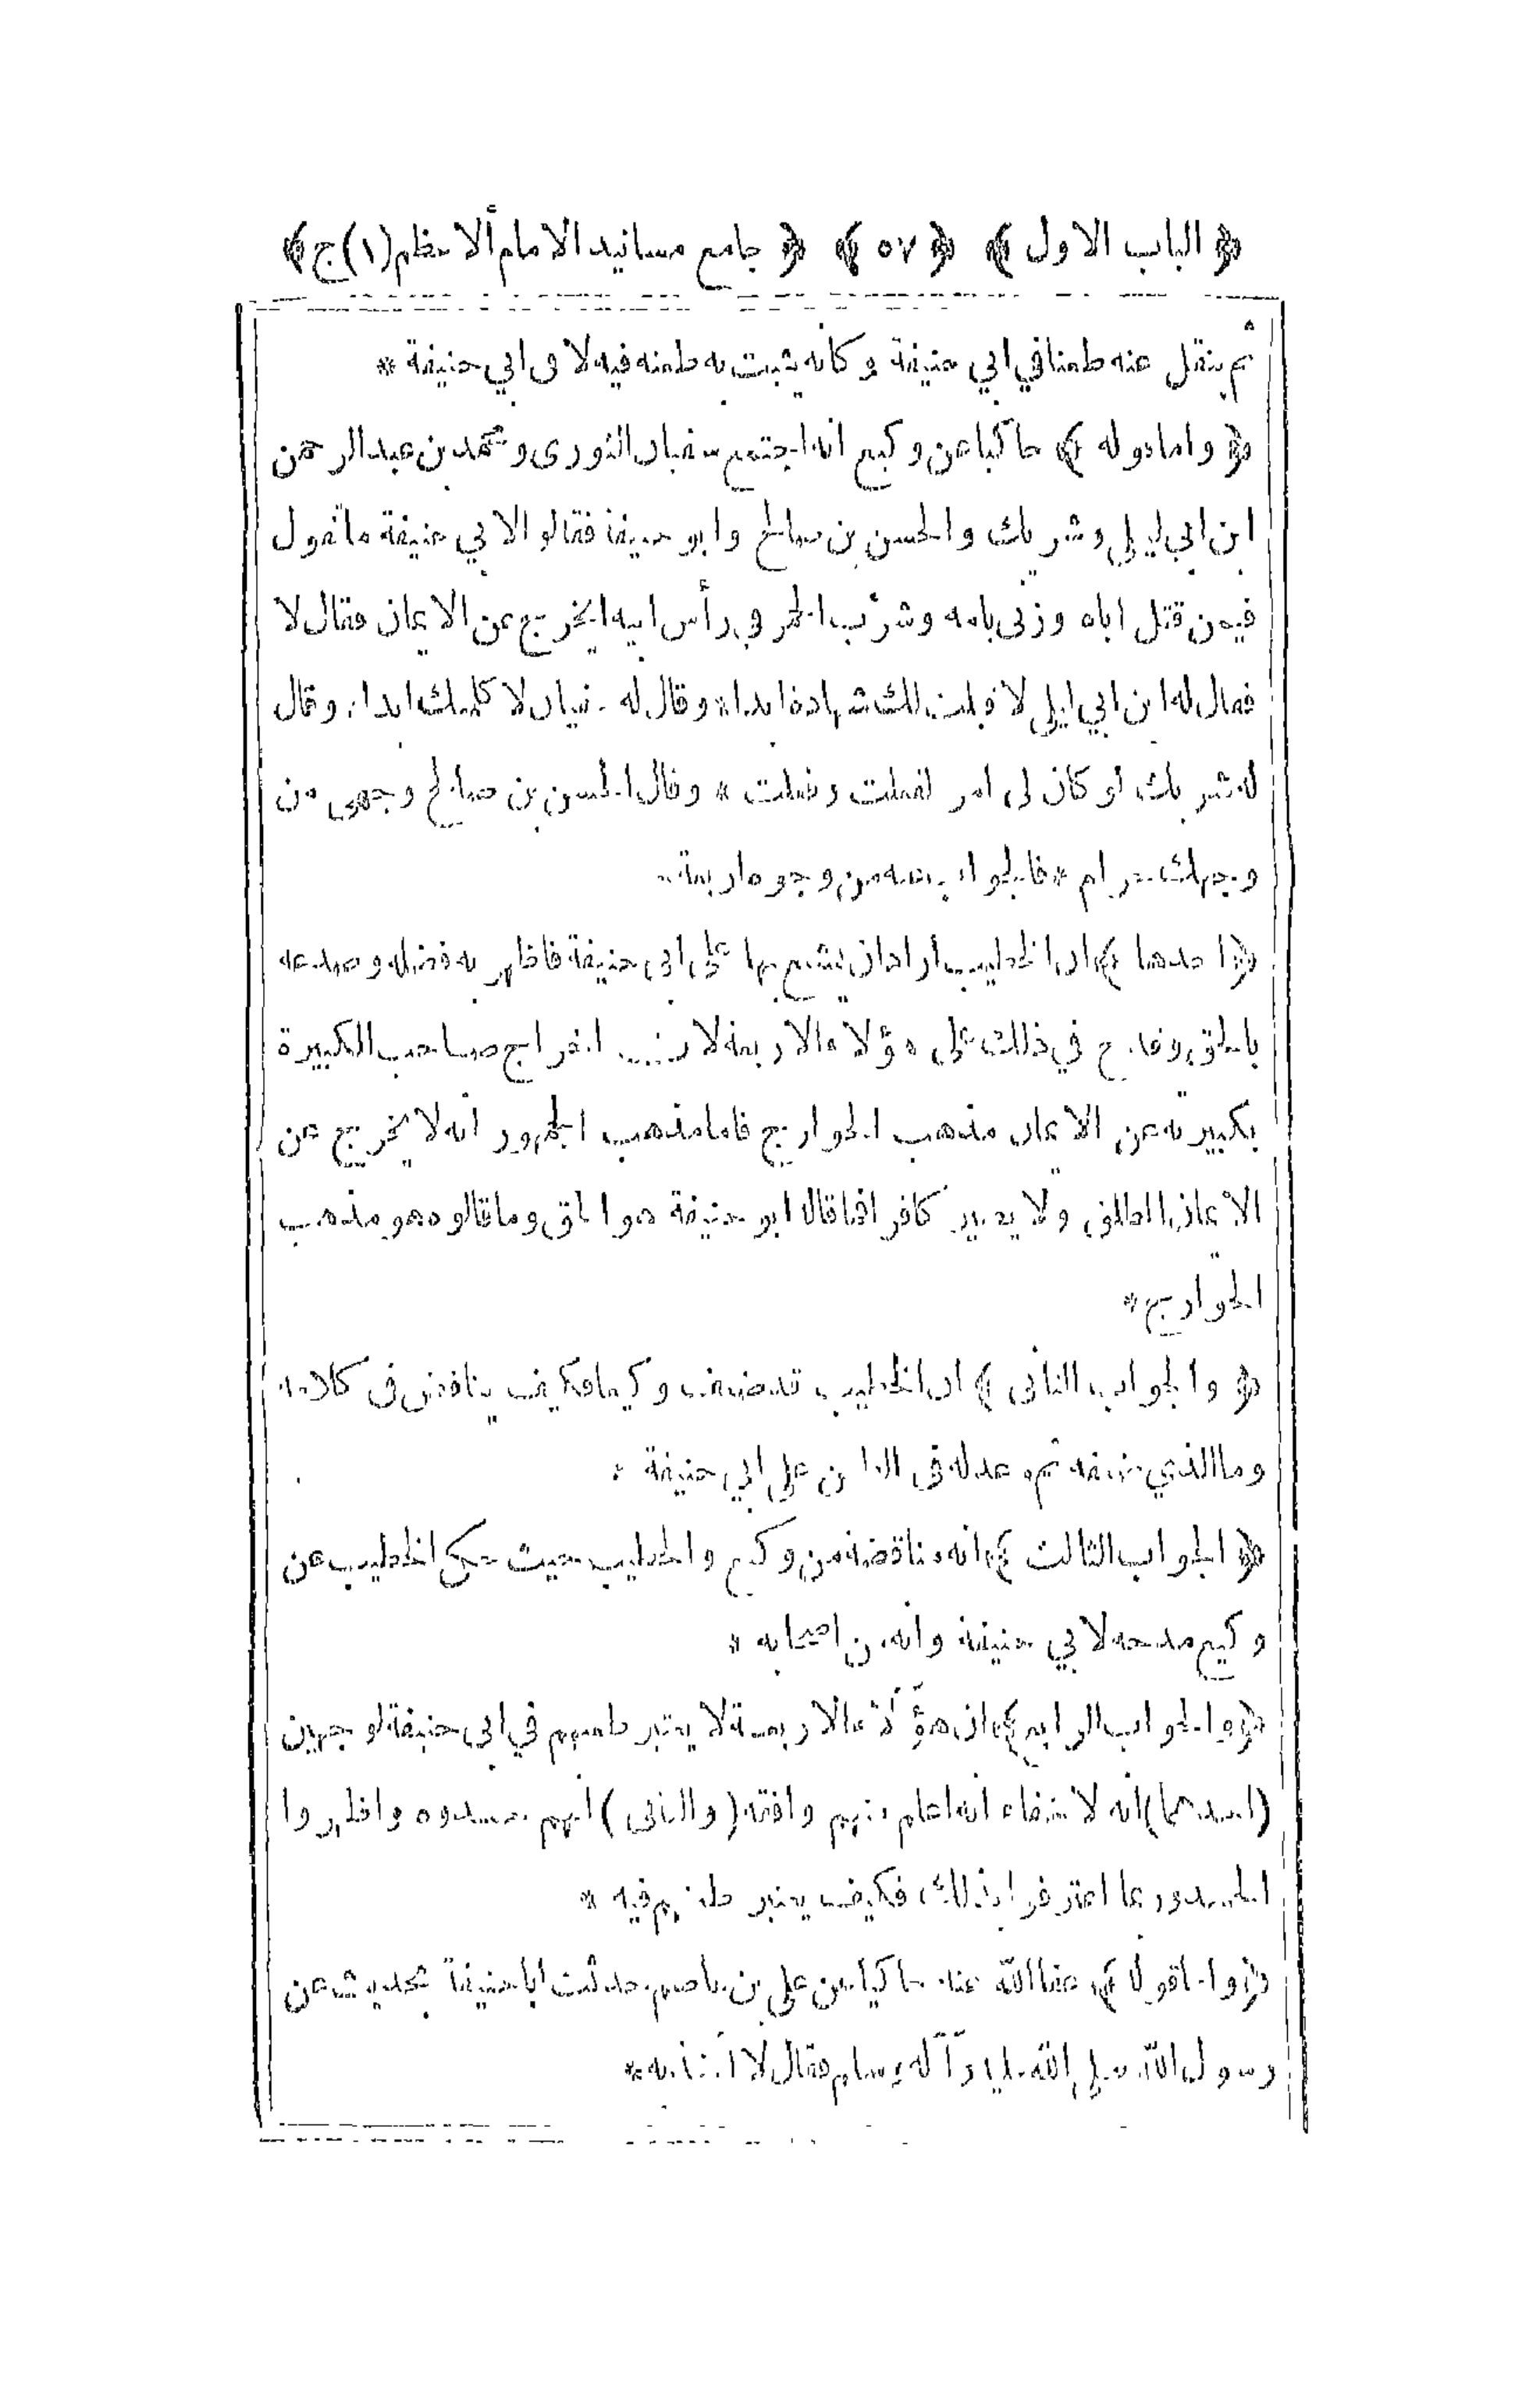 ﴿ الباب الاول ﴾ ﴿ ٥٧ ﴾ ﴿ جامع مسانيد الامام الاعظم (١) ج ﴾
ثم ينقل عنه طعنا في ابي حنيفة وكانه يثبت به طعنه فيه لا في ابي حنيفة *
﴿ واما قوله ﴾ حاكيا عن وكيع انه اجتمع سفيان الثورى ومحمد بن عبد الرحمن
ابن ابي ليلى وشريك والحسن بن صالح وابو حنيفة فقالوا لابي حنيفة ما تقول
فيمن قتل اباه وزنى بامه وشرب الخمر في رأس ابيه ايخرج عن الايمان فقال لا
فقال له ابن ابي ليلى لا قبلت لك شهادة ابدا * وقال له سفيان لا كلمتك ابدا * وقال
له شريك لو كان لى امر لفعلت وفعلت * وقال الحسن بن صالح وجهى من
وجهك حرام * فالجواب عنه من وجوه اربعة *
﴿ احدها ﴾ ان الخطيب اراد ان يشنع بها على ابى حنيفة فاظهر به فضله وصدعه
بالحق وقدح في ذلك على هؤلاء الاربعة لان اخراج صاحب الكبيرة
بكبيرته عن الايمان مذهب الخوارج فاما مذهب الجمهور انه لا يخرج عن
الايمان المطلق ولا يصير كافرا فما قاله ابو حنيفة هو الحق وما قالوه هو مذهب
الخوارج *
﴿ والجواب الثانى ﴾ ان الخطيب قد ضعف وكيعا فكيف يناقض فى كلامه
وما الذي ضعفه ثم عدله فى الطعن على ابي حنيفة *
﴿ الجواب الثالث ﴾ انه مناقضة من وكيع والخطيب حيث حكى الخطيب عن
وكيع مدحه لابي حنيفة وانه من اصحابه *
﴿ والجواب الرابع ﴾ ان هؤلاء الاربعة لا يعتبر طعنهم في ابى حنيفة لوجهين
(احدهما) انه لا خفاء انه اعلم منهم وافقه (والثانى) انهم حسدوه واظهروا
الحسد وربما اعترفوا بذلك فكيف يعتبر طعنهم فيه *
﴿ واما قوله ﴾ عفا الله عنه حاكيا عن على بن عاصم حدثت ابا حنيفة بحديث عن
رسول الله صلى الله عليه وآله وسلم فقال لا آخذ به *